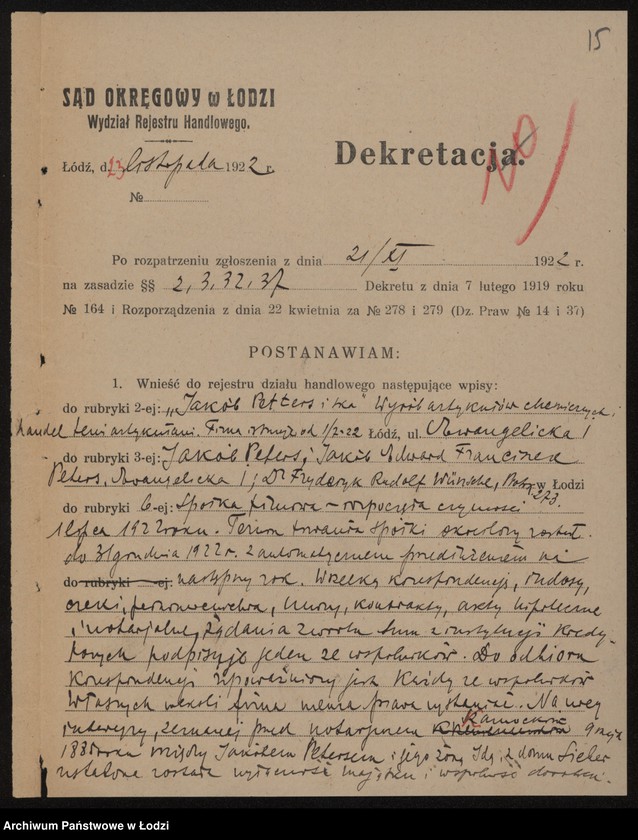 15
SĄD OKRĘGOWY w ŁODZI
Wydział Rejestru Handlowego.
Dekretacja.
Łódź, d. 23 listopada 1922 r.
№
Po rozpatrzeniu zgłoszenia z dnia 21/XI 1922 r.
na zasadzie §§ 2, 3, 32, 37 Dekretu z dnia 7 lutego 1919 roku
№ 164 i Rozporządzenia z dnia 22 kwietnia za № 278 i 279 (Dz. Praw № 14 i 37)
POSTANAWIAM:
1. Wnieść do rejestru działu handlowego następujące wpisy:
do rubryki 2-ej: „Jakób Petters i ska" Wyrób artykułów chemicznych i
handel temi artykułami. Firma istnieje od 1/2-22 Łódź, ul. Ewangelicka 1
do rubryki 3-ej: Jakób Peters, Jakób Edward Franciszek
Peters, Ewangelicka 1; Dr Fryderyk Rudolf w Łodzi
273.
do rubryki 6-ej: Spółka firmowa – rozpoczęła czynności
1 1922 roku. Termin trwania spółki określony został
do 31 grudnia 1922 r. z automatycznem przedłużeniem na
do rubryki -ej: następny rok. Wszelką korespondencję, indosy,
czeki, pełnomocnictwa, umowy, kontrakty, akty hipoteczne
i notarjalne, żądania zwrotu sum z instytucji kredy-
towych podpisuje jeden ze wspólników. Do odbioru
korespondencji upoważniony jest każdy ze wspólników
Własnych weksli firma niema prawa wystawiać. Na mocy
intercyzy, zeznanej przed notarjuszem Kamockim 9 maja
roku między Jakóbem Petersem i jego żoną Idą, z domu
ustalona została wyłączność majątku i wspólność dorobku.
Archiwum Państwowe w Łodzi